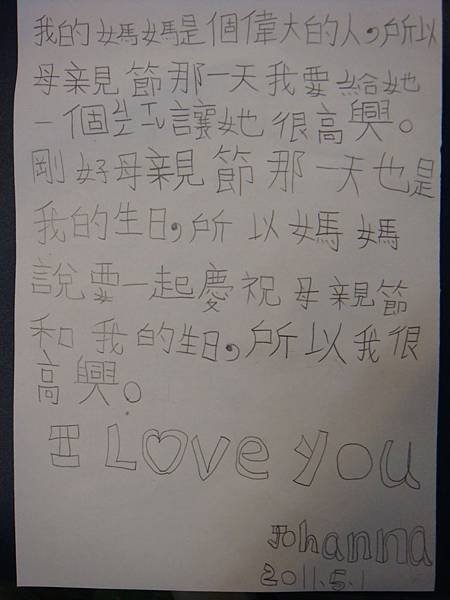 我的媽媽是個偉大的人,所以
母親節那一天我要給她
一個讓她很高興。
剛好母親節那一天也是
我的生日,所以媽媽
說要一起慶祝母親節
和我的生日,所以我很
高興。
I Love you
Johanna
2011.5.1